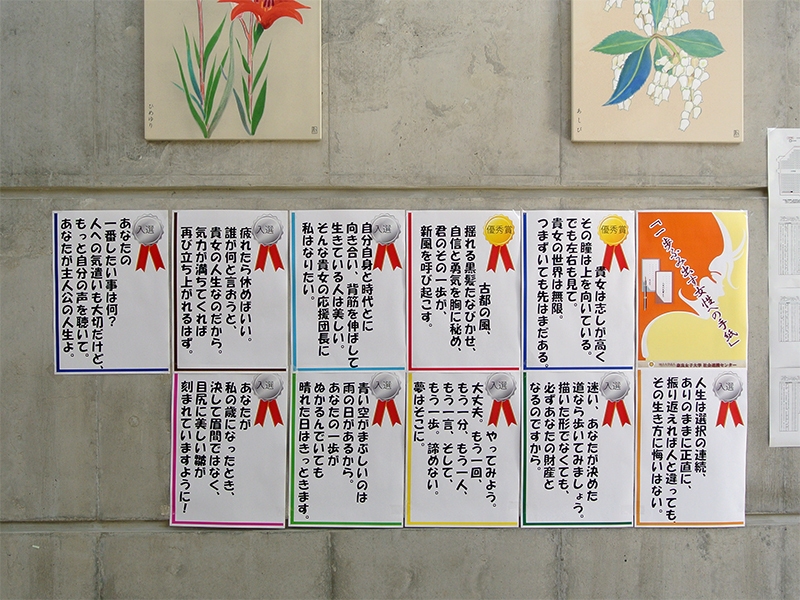 ひめゆり
あしび
「一歩ふみ出す女性への手紙」
奈良女子大学 社会連携センター
優秀賞
貴女は志しが高く
その瞳は上を向いている。
でも左右も見て。
貴女の世界は無限。
つまずいても先はまだある。
優秀賞
古都の風、
揺れる黒髪たなびかせ、
自信と勇気を胸に秘め、
君のその一歩が、
新風を呼び起こす。
入選
自分自身と時代とに
向き合い、背筋を伸ばして
生きている人は美しい。
そんな貴女の応援団長に
私はなりたい。
入選
疲れたら休めばいい。
誰が何と言おうと、
貴女の人生なのだから。
気力が満ちてくれば
再び立ち上がれるはず。
入選
あなたの
一番したい事は何?
人への気遣いも大切だけど、
もっと自分の声を聴いて。
あなたが主人公の人生よ。
入選
人生は選択の連続、
ありのままに正直に、
振り返えれば人と違っても、
その生き方に悔いはない。
入選
迷い、あなたが決めた
道なら歩いてみましょう。
描いた形でなくても、
必ずあなたの財産と
なるのですから。
入選
やってみよう。
大丈夫。もう一回、
もう一分、もう一人、
もう一言、そして、
もう一歩、諦めない。
夢はそこに。
入選
青い空がまぶしいのは
雨の日があるから。
あなたの一歩が
ぬかるんでいても
晴れた日はきっときます。
入選
あなたが
私の歳になったとき、
決して眉間ではなく、
目尻に美しい皺が
刻まれていますように!